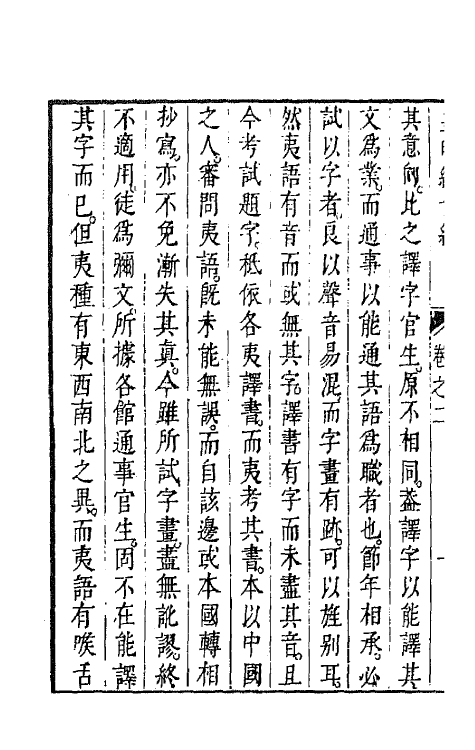 其意向。比之譯字官生。原不相同。葢譯字以能譯其
文爲業。而通事以能通其語爲職者也。節年相承。必
試以字者。良以聲音易混。而字畫有跡。可以旌别耳。
然夷語有音而或無其字。譯書有字而未盡其音。且
今考試題字。秪依各夷譯書。而夷考其書。本以中國
之人。審問夷語。旣未能無誤。而自該邊或本國轉相
抄寫。亦不免漸失其真。今雖所試字畫。盡無訛謬。終
不適用。徒爲彌文。所據各館通事官生。固不在能譯
其字而已。但夷種有東西南北之異。而夷語有喉舌
卷之二